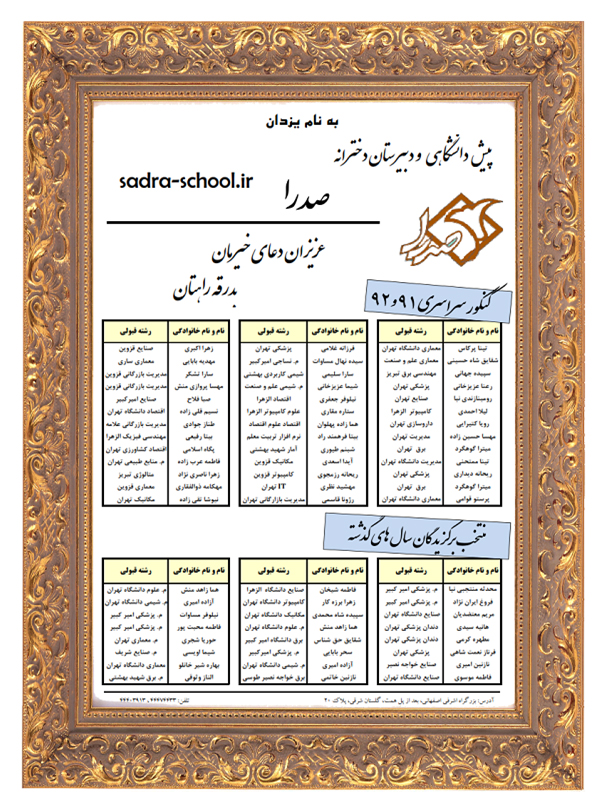 به نام یزدان
پیش دانشگاهی و دبیرستان دخترانه
sadra-school.ir
صدرا
صدرا
عزیزان دعای خیرمان
بدرقه راهتان
کنکور سراسری ۹۱ و ۹۲
نام و نام خانوادگی رشته قبولی
تینا پرکاس معماری دانشگاه تهران
شقایق شاه حسینی معماری علم و صنعت
سپیده جهانی مهندسی برق تبریز
رعنا عزیزخانی پزشکی تهران
رومینازندی نیا صنایع تهران
لیلا احمدی کامپیوتر الزهرا
رویا کثیرایی داروسازی تهران
مهسا حسین زاده مدیریت تهران
میترا کوهگرد برق تهران
تینا ممتحنی مدیریت دانشگاه تهران
ریحانه دیداری پزشکی تهران
میترا کوهگرد برق تهران
پرستو قوامی معماری دانشگاه تهران
نام و نام خانوادگی رشته قبولی
فرزانه غلامی پزشکی تهران
سیده نهال مساوات م. نساجی امیرکبیر
سارا سلیمی شیمی کاربردی بهشتی
شیما عزیزخانی م. شیمی علم و صنعت
نیلوفر جعفری اقتصاد الزهرا
ستاره مقاری علوم کامپیوتر الزهرا
هما زاده پهلوان اقتصاد علوم اقتصاد
بیتا فرهمند راد نرم افزار تربیت معلم
شبنم طیوری آمار شهید بهشتی
آیدا اسعدی مکانیک قزوین
ریحانه رزمجوی کامپیوتر قزوین
مهشید نظری IT تهران
رزوتا قاسمی مدیریت بازارگانی تهران
نام و نام خانوادگی رشته قبولی
زهرا اکبری صنایع قزوین
مهدیه بابایی معماری ساری
سارا تشکر مدیریت بازرگانی قزوین
مهسا پروازی منش مدیریت بازرگانی قزوین
صبا فلاح صنایع امیرکبیر
نسیم قلی زاده اقتصاد دانشگاه تهران
طناز جوادی مدیریت بازرگانی علامه
بیتا رفیعی مهندسی فیزیک الزهرا
پگاه اسلامی اقتصاد کشاورزی تهران
فاطمه عرب زاده م. منابع طبیعی تهران
زهرا ناصری نژاد متالوژی تبریز
مهکامه ذوالفقاری معماری قزوین
نیوشا تقی زاده مکانیک تهران
منتخب برگزیدگان سال های گذشته
نام و نام خانوادگی رشته قبولی
محدثه منتجبی نیا م. پزشکی امیر کبیر
فروغ ایران نژاد م. پزشکی امیر کبیر
مریم معتمدیان صنایع دانشگاه تهران
هانیه سیدی دندان پزشکی تهران
مطهره کرمی دندان پزشکی تهران
فرناز نعمت شاهی پزشکی تهران
نازنین امیری صنایع خواجه نصیر
فاطمه موسوی صنایع دانشگاه تهران
نام و نام خانوادگی رشته قبولی
فاطمه شیخان صنایع دانشگاه الزهرا
زهرا برزه کار کامپیوتر دانشگاه تهران
سپیده شاه محمدی مکانیک دانشگاه تهران
هما زاهد منش م. علوم دانشگاه تهران
شقایق حق شناس برق دانشگاه امیر کبیر
سحر بابایی م. پزشکی امیر کبیر
آزاده امیری م. شیمی دانشگاه تهران
نازنین خاتمی برق خواجه نصیر طوسی
نام و نام خانوادگی رشته قبولی
هما زاهد منش م. علوم دانشگاه تهران
آزاده امیری م. شیمی دانشگاه تهران
نیلوفر مساوات م. پزشکی امیر کبیر
فاطمه محبت پور م. پزشکی امیر کبیر
حوریا شجری م. معماری تهران
شیما اویسی م. صنایع شریف
بهاره شیر خانلو معماری دانشگاه تهران
الناز وثوقی م. برق شهید بهشتی
آدرس: بزرگراه اشرفی اصفهانی، بعد از پل همت، گلستان شرقی، پلاک ۲۰ تلفن: ۴۴۴۷۴۶۳۳ , ۴۴۴۰۳۹۱۳